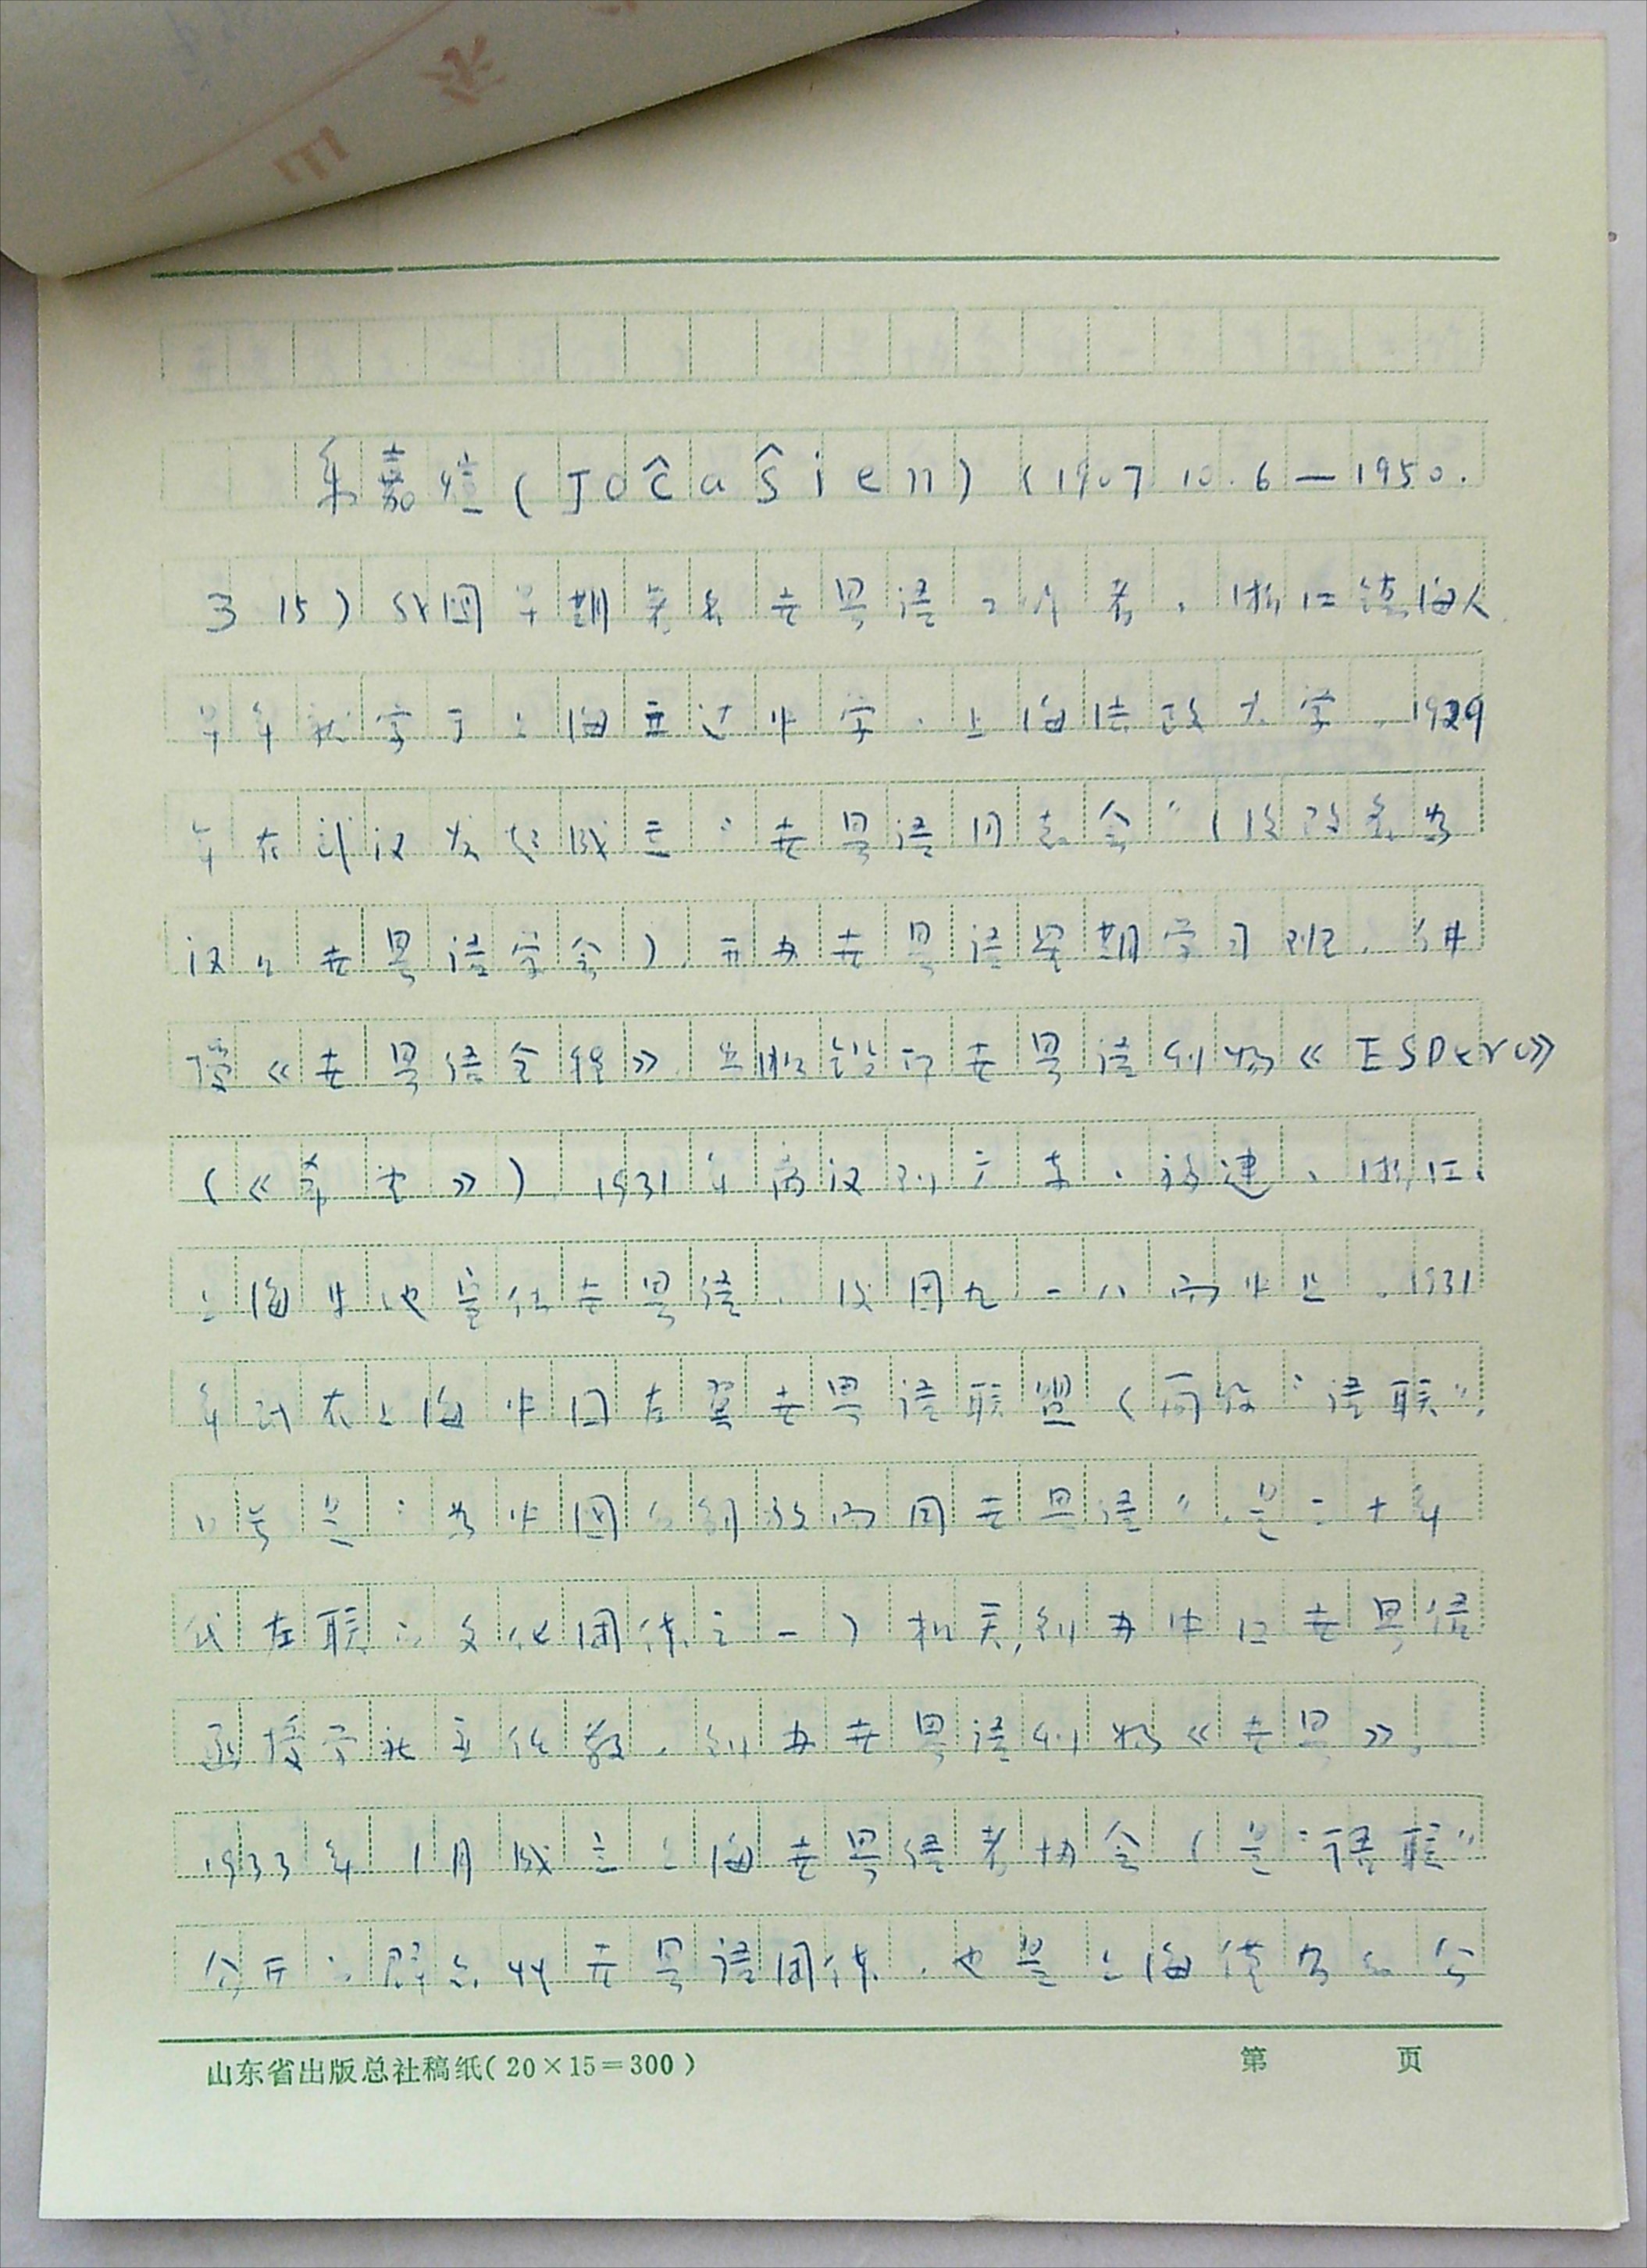 乐嘉煊(JoĈaŜien)(1907 10.6—1950.
3 15)我国早期著名世界语工作者,浙江镇海人
早年就学于上海立达中学、上海法政大学。1929
年在武汉发起成立“世界语同志会”(后改名为
汉口世界语学会),开办世界语星期学习班,
授《世界语全程》,出版铅印世界语刊物《ESPero》
(《希望》)。1931年离汉到广东、福建、浙江、
上海等地宣传世界语,后因九一八而中止。1931
年 在上海中国左翼世界语联盟(简称“语联”,
口号是“为中国的解放而用世界语”,是三十年
代左联的文化团体之一)机关,创办中心世界语
函授学社主任教,创办世界语刊物《世界》。
1933年1月成立上海世界语者协会(是“语联”
公开的群众性世界语团体,也是上海 公
山东省出版总社稿纸(20×15=300) 第 页